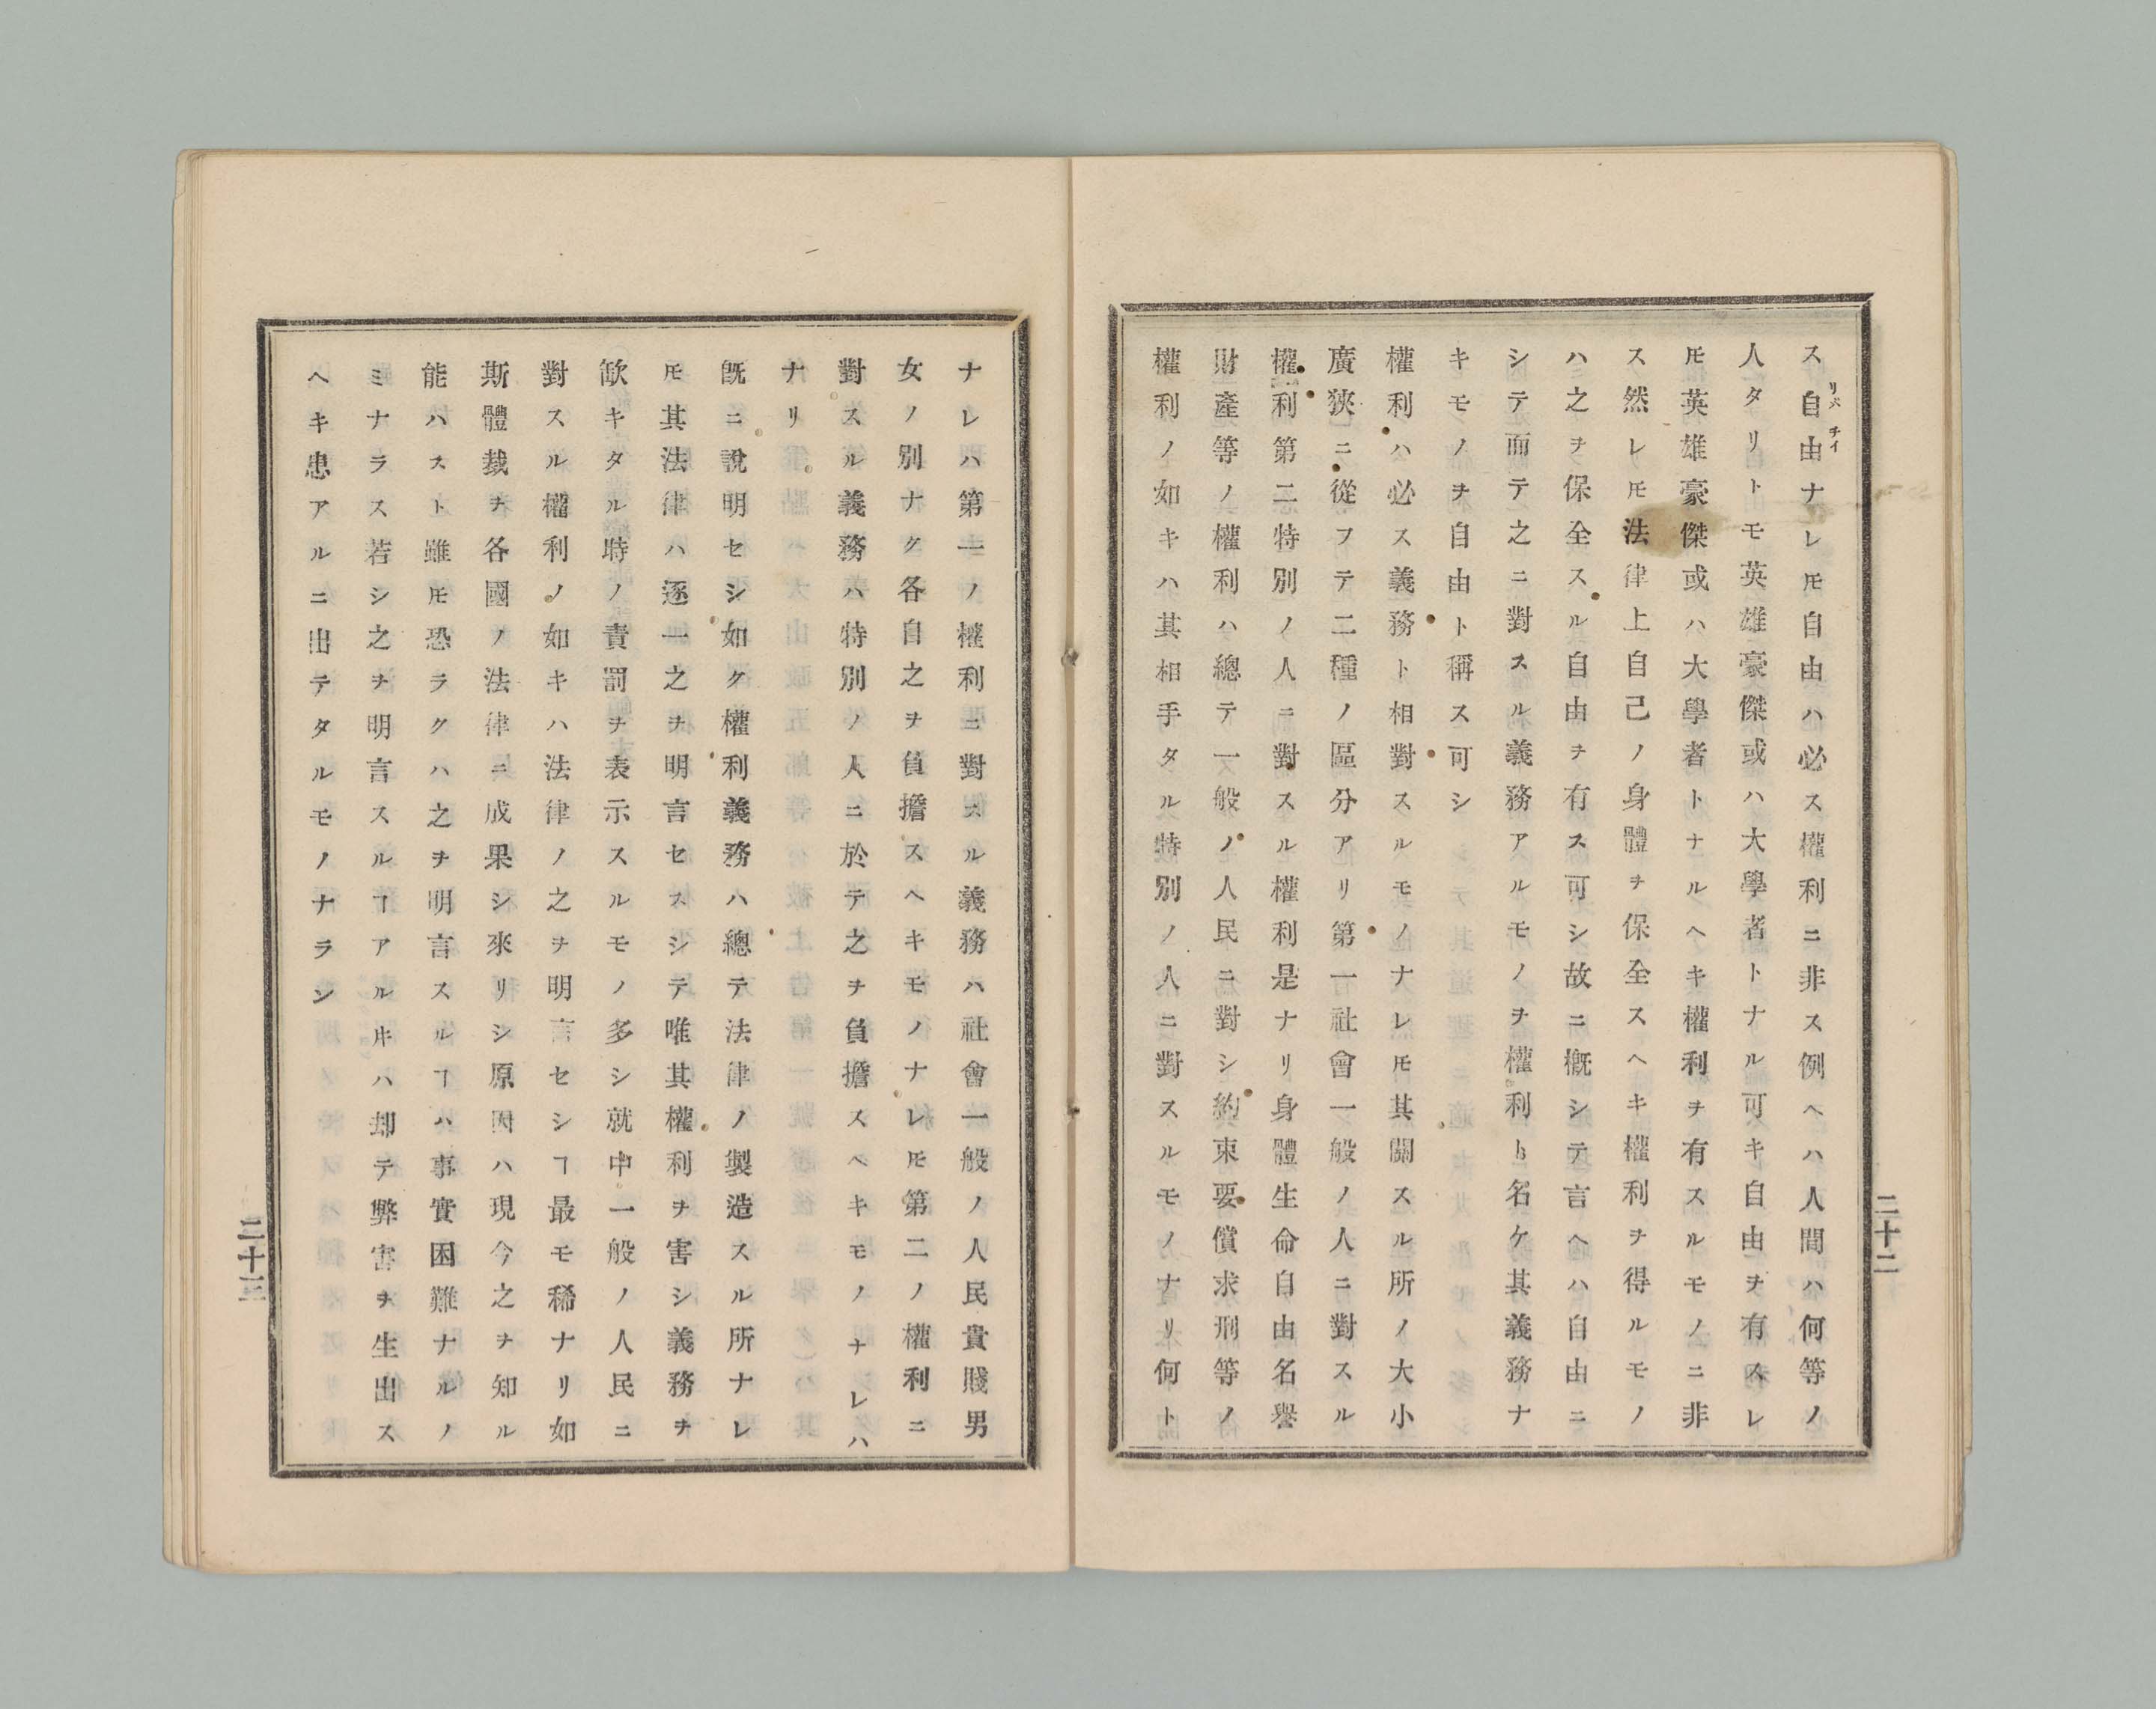 ス自由ナレ𪜈自由ハ必ス權利ニ非ス例ヘハ人間ハ何等ノ
リベ チイ
人タリトモ英雄豪傑或ハ大學者トナル可キ自由ヲ有スレ
𪜈英雄豪傑或ハ大學者トナルヘキ權利ヲ有スルモノニ非
ス然レ𪜈法律上自己ノ身體ヲ保全スヘキ權利ヲ得ルモノ
ハ之ヲ保全スル自由ヲ有ス可シ故ニ概シテ言ヘハ自由ニ
シテ而テ之ニ對スル義務アルモノヲ權利ト名ケ其義務ナ
キモノヲ自由ト稱ス可シ
權利ハ必ス義務ト相對スルモノナレ𪜈其關スル所ノ大小
廣狹ニ從フテ二種ノ區分アリ第一社會一般ノ人ニ對スル
權利第二特別ノ人ニ對スル權利是ナリ身體生命自由名譽
財產等ノ權利ハ總テ一般ノ人民ニ對シ約束要償求刑等ノ
權利ノ如キハ其相手タル特別ノ人ニ對スルモノナリ何ト
二十二
ナレハ第一ノ權利ニ對スル義務ハ社會一般ノ人民貴賤男
女ノ別ナク各自之ヲ負擔スヘキモノナレ𪜈第二ノ權利ニ
對スル義務ハ特別ノ人ニ於テ之ヲ負擔スヘキモノナレハ
ナリ
既ニ說明セシ如ク權利義務ハ總テ法律ノ製造スル所ナレ
𪜈其法律ハ逐一之ヲ明言セスシテ唯其權利ヲ害シ義務ヲ
歛キタル時ノ責罰ヲ表示スルモノ多シ就中一般ノ人民ニ
對スル權利ノ如キハ法律ノ之ヲ明言セシヿ最モ稀ナリ如
斯體裁ヲ各國ノ法律ニ成果シ來リシ原因ハ現今之ヲ知ル
能ハスト雖𪜈恐ラクハ之ヲ明言スルヿハ事實困難ナルノ
ミナラス若シ之ヲ明言スルヿアル𪜈ハ却テ弊害ヲ生出ス
ヘキ患アルニ出テタルモノナラン
二十三